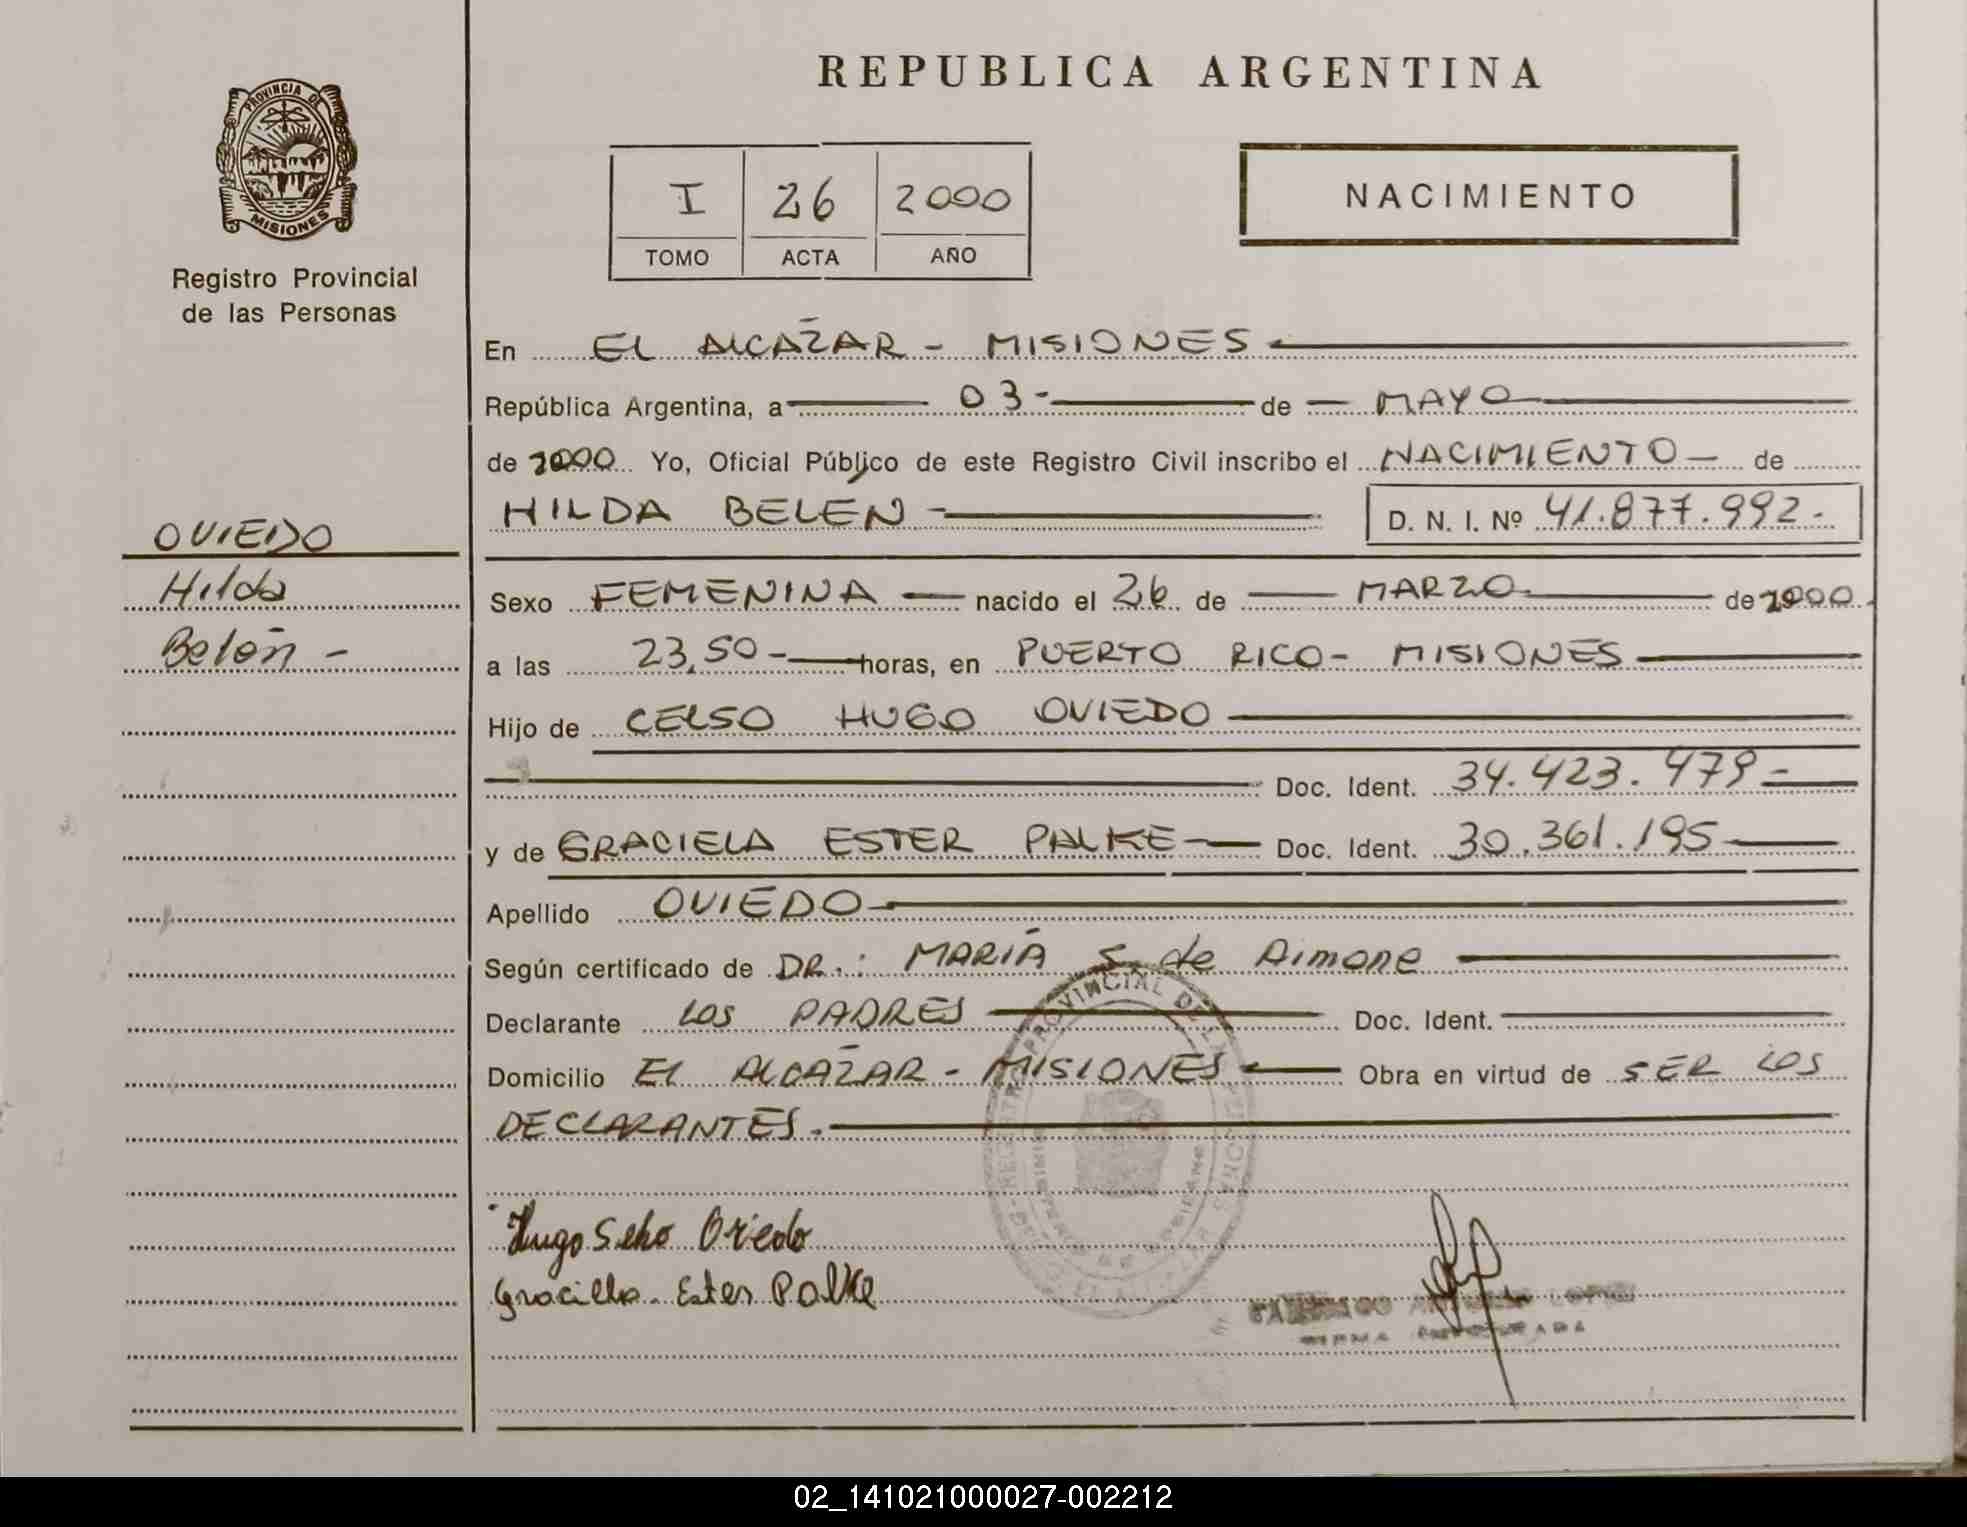 REPUBLICA ARGENTINA
PROVINCIA DE
MISIONES
Registro Provincial
de las Personas
I 26 2000
TOMO ACTA AÑO
NACIMIENTO
En EL ALCAZAR - MISIONES
República Argentina, a 03- de MAYO
de 2000 Yo, Oficial Público de este Registro Civil inscribo el NACIMIENTO de
HILDA BELEN - D. N. I. Nº 41.877.992.-
OVIEDO
Hilda
Belén -
Sexo FEMENINA nacido el 26 de MARZO de 2000
a las 23,50- horas, en PUERTO RICO - MISIONES
Hijo de CELSO HUGO OVIEDO
Doc. Ident. 34.423.479-
y de GRACIELA ESTER PALKE Doc. Ident. 30.361.195
Apellido OVIEDO
Según certificado de DR.: MARÍA S. de Aimone
Declarante LOS PADRES Doc. Ident.
Domicilio EL ALCAZAR - MISIONES Obra en virtud de SER LOS
DECLARANTES.
REGISTRO PROVINCIAL DE LAS PERSONAS
Hugo Selso Oviedo
Graciella Ester Palke
02_141021000027-002212